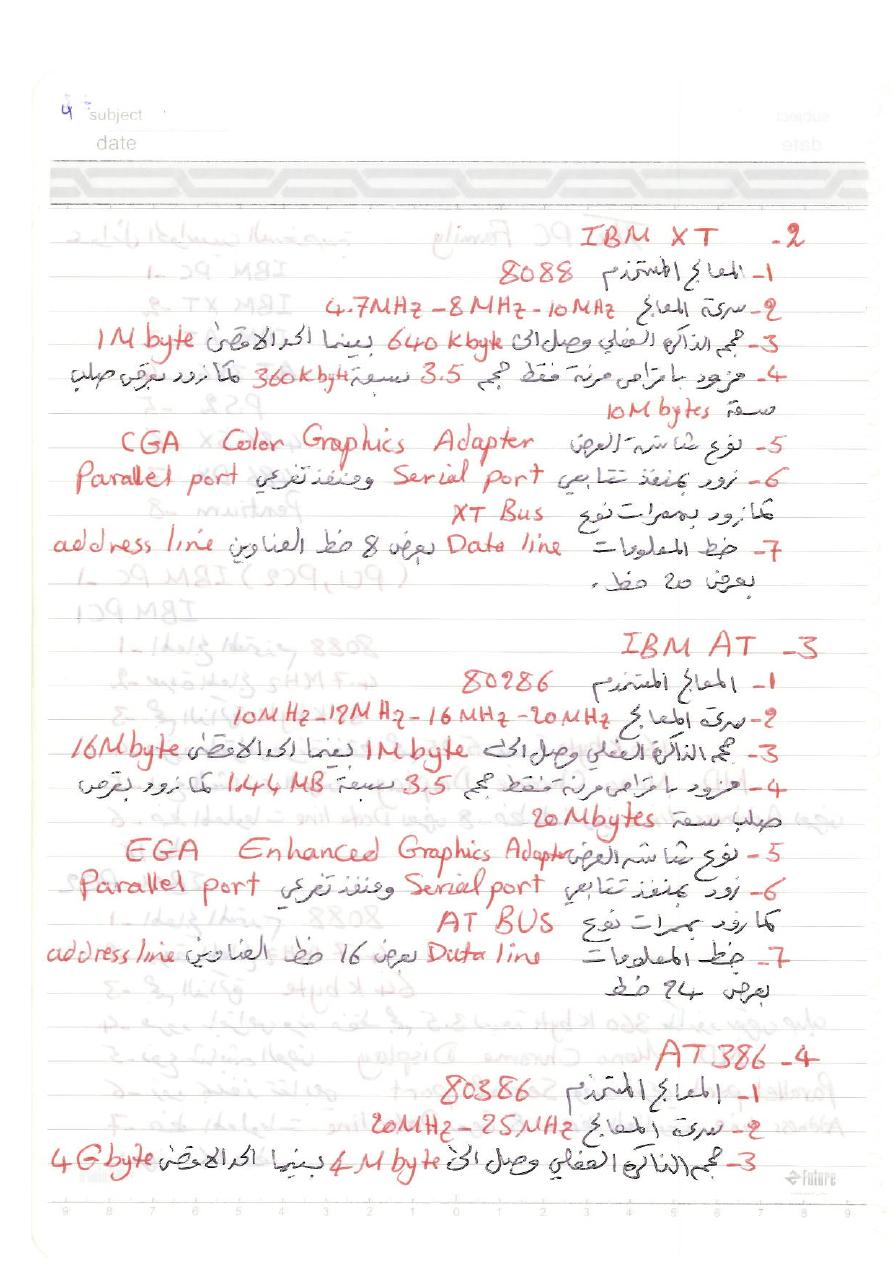 4
subject
date
2- IBM XT
1- المعالج المستخدم 8088
2- سرعة المعالج 4.7MHz - 8MHz - 10MHz
3- حجم الذاكرة الفعلي وصل الى 640 Kbyte بينما الحد الاقصى 1Mbyte
4- مزود باقراص مرنة فقط حجم 3.5 بسعة 360Kbyte كما زود بقرص صلب
سعة 10Mbytes
5- نوع شاشة العرض CGA Color Graphics Adapter
6- زود بمنفذ تتابعي Serial port ومنفذ تفرعي Parallel port
كما زود بممرات نوع XT Bus
7- خط المعلومات Data line بعرض 8 خط العناوين address line
بعرض 20 خط.
3- IBM AT
1- المعالج المستخدم 80286
2- سرعة المعالج 10MHz-12MHz-16MHz-20MHz
3- حجم الذاكرة الفعلي وصل الى 1Mbyte بينما الحد الاقصى 16Mbyte
4- مزود باقراص مرنة فقط حجم 3.5 بسعة 1.44 MB كما زود بقرص
صلب سعة 20Mbytes
5- نوع شاشة العرض EGA Enhanced Graphics Adapter
6- زود بمنفذ تتابعي Serial port ومنفذ تفرعي Parallel port
كما زود بممرات نوع AT BUS
7- خط المعلومات Data line بعرض 16 خط العناوين address line
بعرض 24 خط
4- AT 386
1- المعالج المستخدم 80386
2- سرعة المعالج 20MHz - 25MHz
3- حجم الذاكرة الفعلي وصل الى 4 Mbyte بينما الحد الاقصى 4 Gbyte
Future
9 8 7 6 5 4 3 2 1 0 1 2 3 4 5 6 7 8 9